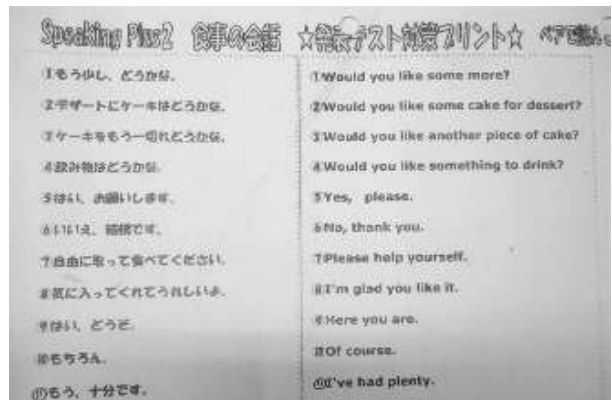 Speaking Plus2 食事の会話 ☆発表テスト対策プリント☆ ペアで
①もう少し、どうかな。
②デザートにケーキはどうかな。
③ケーキをもう一切れどうかな。
④飲み物はどうかな。
⑤はい、お願いします。
⑥いいえ、結構です。
⑦自由に取って食べてください。
⑧気に入ってくれてうれしいよ。
⑨はい、どうぞ。
⑩もちろん。
⑪もう、十分です。
①Would you like some more?
②Would you like some cake for dessert?
③Would you like another piece of cake?
④Would you like something to drink?
⑤Yes, please.
⑥No, thank you.
⑦Please help yourself.
⑧I'm glad you like it.
⑨Here you are.
⑩Of course.
⑪I've had plenty.